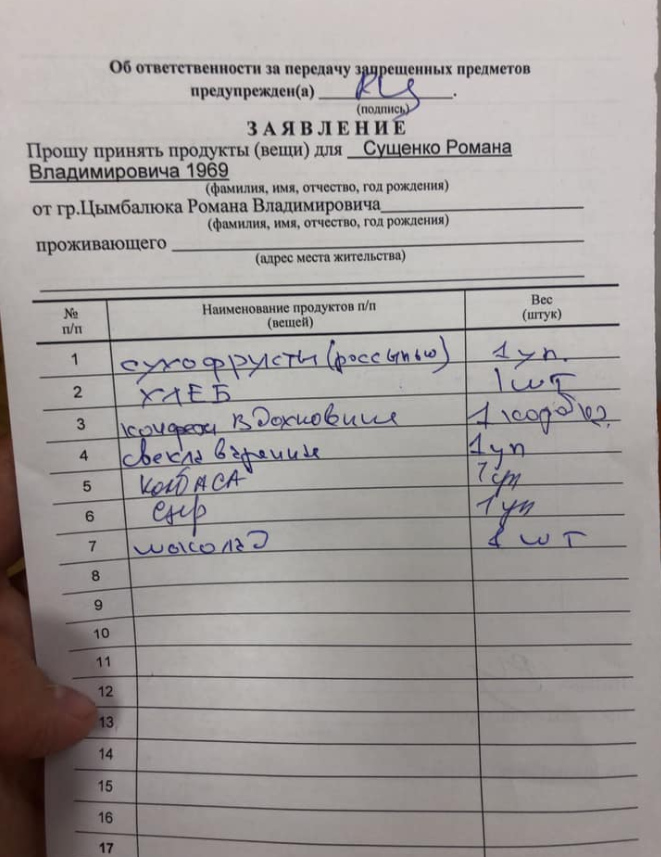 Об ответственности за передачу запрещенных предметов
предупрежден(а) ______________.
(подпись)
ЗАЯВЛЕНИЕ
Прошу принять продукты (вещи) для Сущенко Романа
Владимировича 1969
(фамилия, имя, отчество, год рождения)
от гр.Цымбалюка Романа Владимировича
(фамилия, имя, отчество, год рождения)
проживающего
(адрес места жительства)
№ п/п Наименование продуктов п/п (вещей) Вес (штук)
1 сухофрукты (россыпью) 1 уп.
2 ХЛЕБ 1 шт
3 конфеты Вдохновение 1 короб
4 свекла вареная 1 уп
5 КОЛБАСА
6 сыр 1 уп
7 шоколад 1 шт
8
9
10
11
12
13
14
15
16
17